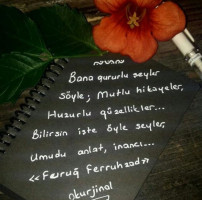 Bana gururlu şeyler
söyle; Mutlu hikayeler,
Huzurlu güzellikler...
Bilirsin işte öyle şeyler,
Umudu anlat, inancı...
<<Furuğ Ferruhzad>>
okurjinal